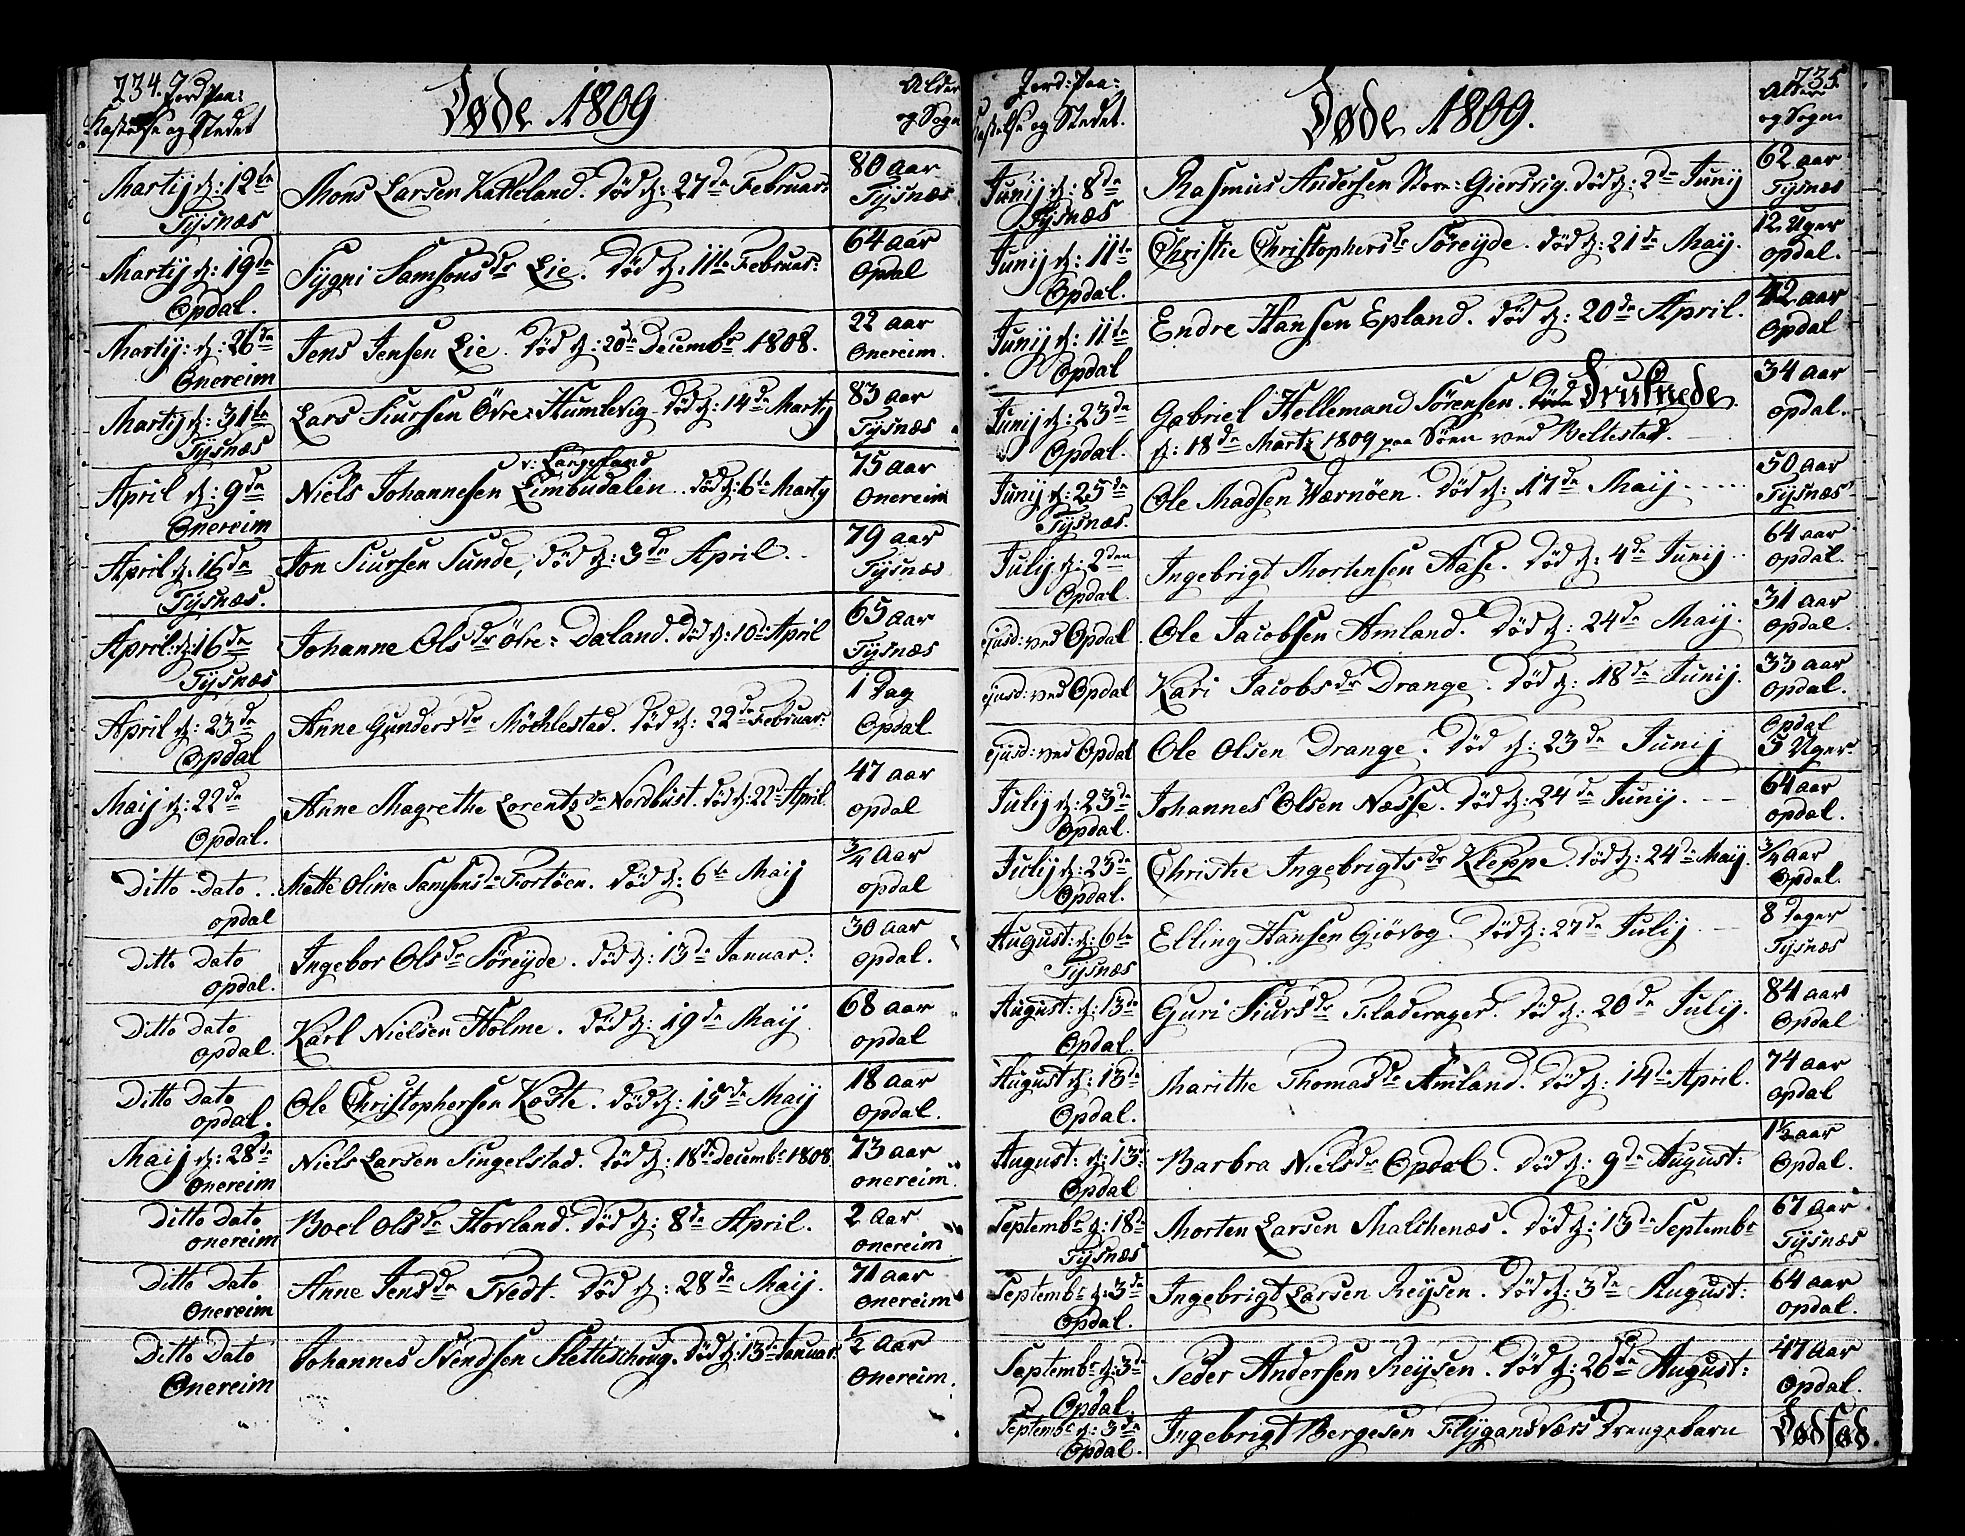 234.
Jord Paa:
kastelse og Stedet
Døde 1809
Alder
og Sogn
Martij d: 12te
Tysnæs
Mons Larsen Kakkeland. Død d: 27de Februar:
80 aar
Tysnæs
Martij d: 19de
Opdal.
Sygni Samsonsdr Lie. Død d: 11te Februar:
64 aar
Opdal
Martij: d: 26de
Onereim
Jens Jensen Lie. Død d: 20de Decembr 1808.
22 aar
Onereim.
Martij d: 31te
Tysnæs
Lars Siursen Övre: Humlevig. Død d: 14de Martij
83 aar
Tysnæs
April d: 9de
Onereim
v: Langeland
Niels Johannesen Limbudalen. død d: 6te Martij
75 aar
Onereim
April d: 16de
Tysnæs.
Jon Siursen Sunde, død d: 3de April.
79 aar
Tysnæs
April: d: 16de
Tysnæs
Johanne Olsdr Øvre: Daland. død d: 10de April
65 aar
Tysnæs
April d: 23de
Opdal
Anne Gundersdr Möchlestad. Død d: 22de Februar:
1 Dag
Opdal
Maij d: 22de
Opdal.
Anne Magrethe Lorentzdr Nordbust. død d: 22de April.
47 aar
opdal
Ditto Dato.
opdal
Mette Olina Samsonsdr Fortöen. død d: 6te Maij
3/4 Aar
opdal
Ditto Dato
opdal.
Ingebor Olsdr Söreyde. død d: 13de Januar:
30 aar
opdal.
Ditto Dato
opdal.
Karl Nielsen Holme. død d: 19de Maij.
68 aar
opdal
Ditto Dato
opdal.
Ole Christophersen Koste. død d: 15de Maij
18 aar
Opdal.
Maij d: 28de
Onereim
Niels Larsen Singelstad. Død d: 18de Decembr 1808
73 aar
onereim.
Ditto Dato
onereim
Boel Olsdr Hovland. Død d: 8de April.
2 Aar
onereim
Ditto Dato.
Onereim
Anne Jensdr Tvedt. Død d: 28de Maij.
71 aar
onereim
Ditto Dato
Onereim
Johannes Svendsen Sletteschoug. Død d: 13de Januar:
1/2 Aar
Onereim.
235
Jord: Paa:
kastelse og Stedet.
Døde 1809.
Alder
og Sogn
Junij d: 8de
Tysnæs
Rasmus Andersen Store: Giersvig. død d: 2de Junij
62 aar
Tysnæs
Junij d: 11te
Opdal.
Christie Christophersdr Söreyde. død d: 21de Maij.
12 Uger
opdal.
Junij d: 11te
Opdal
Endre Hansen Epland. død d: 20de April.
42 aar
Opdal
Junij d: 23de
Opdal.
Gabriel Hellemand Sörensen. Druknede
d: 18de Martz 1809 paa Söen ved Beltestad.
34 aar
opdal.
Junij d: 25de
Tysnæs.
Ole Madsen Wærnöen. Død d: 17de Maij
50 aar
Tysnæs
Julij d: 2den
Opdal
Ingebrigt Mortensen Aase. Død d: 4de Junij
64 aar
opdal.
ejusd: ved Opdal
Ole Jacobsen Amland. Død d: 24de Maij.
31 aar
opdal.
ejusd: ved Opdal
Kari Jacobsdr Drange. Død d: 18de Junij.
33 aar
opdal.
ejusd: ved Opdal
Ole Olsen Drange. død d: 23de Junij
Opdal
5 Uger
Julij d: 23de
Opdal.
Johannes Olsen Næsse. Død d: 24de Junij.
64 aar
opdal.
Julij d: 23de
Opdal.
Christie Ingebrigtsdr Kleppe. død d: 24de Maij.
3/4 Aar
Opdal.
August: d: 6te
Tysnæs
Elling Hansen Giövog. Død d: 27de Julij
8 Dager
Tysnæs
August: d: 13de
Opdal.
Guri Siursdr Fladerager. Død d: 20de Julij.
84 aar
Opdal
August d: 13de
Opdal.
Marithe Thomasdr Amland. Død d: 14de April.
74 aar
opdal
August: d: 13de
Opdal
Barbra Nielsdr Opdal. Død d: 9de August:
1 1/2 aar
Opdal.
Septembr d: 18de
Tysnæs
Morten Larsen Malchenæs. Død d: 13de Septembr
67 aar
Tysnæs
Septembr d: 3de
Opdal.
Ingebrigt Larsen Reysen. Død d: 3de August:
64 aar
opdal.
Septembr d: 3de
Opdal.
Peder Andersen Reysen. Død d: 26de August:
47 aar
Opdal.
Septembr d: 3de
Opdal.
Ingebrigt Bergesen Flygansværs Drengebarn
Dødfød.